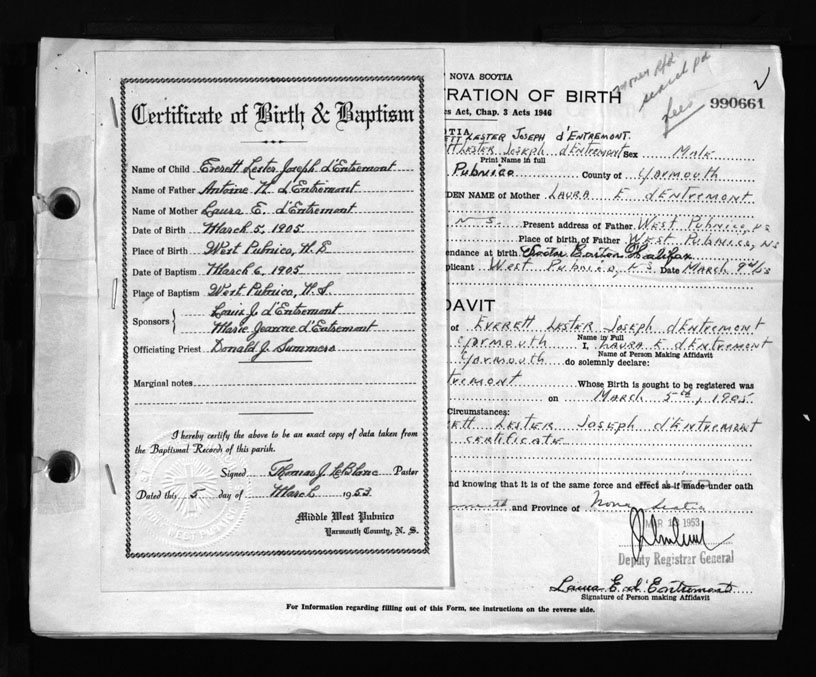 Certificate of Birth & Baptism
Name of Child Everett Lester Joseph d'Entremont
Name of Father Antoine H. d'Entremont
Name of Mother Laura E. d'Entremont
Date of Birth March 5, 1905
Place of Birth West Pubnico, N. S.
Date of Baptism March 6, 1905
Place of Baptism West Pubnico, N. S.
Sponsors { Louis J. d'Entremont
Marie Jeanne d'Entremont
Officiating Priest Donald J. Summers
Marginal notes
I hereby certify the above to be an exact copy of data taken from
the Baptismal Record of this parish.
Signed Thomas J. LeBlanc Pastor
Dated this 5 day of March 1953
Middle West Pubnico
Yarmouth County, N. S.
NOVA SCOTIA
money
search pd
fees
TRATION OF BIRTH
990661
es Act, Chap. 3 Acts 1946
TIA
LESTER JOSEPH d'ENTREMONT.
LESTER JOSEPH d'ENTREMONT Sex Male
Print Name in full
PUBNICO County of YARMOUTH
DEN NAME of Mother LAURA E d'ENTREMONT
N S. Present address of Father WEST PUBNICO, NS
Place of birth of Father WEST PUBNICO, NS
endance at birth Doctor Barton Halifax
plicant WEST PUBNICO, N.S. Date MARCH 9th/53
DAVIT
of EVERETT LESTER JOSEPH d'ENTREMONT
Name in Full
YARMOUTH I, LAURA E d'ENTREMONT
Name of Person Making Affidavit
YARMOUTH do solemnly declare:
TREMONT Whose Birth is sought to be registered was
on MARCH 5th, 1905.
Circumstances:
ETT LESTER JOSEPH d'ENTREMONT
CERTIFICATE
nd knowing that it is of the same force and effect as if made under oath
and Province of Nova Scotia
MAR 1953
Deputy Registrar General
Laura E. d'Entremont
Signature of Person making Affidavit
For Information regarding filling out of this Form, see instructions on the reverse side.